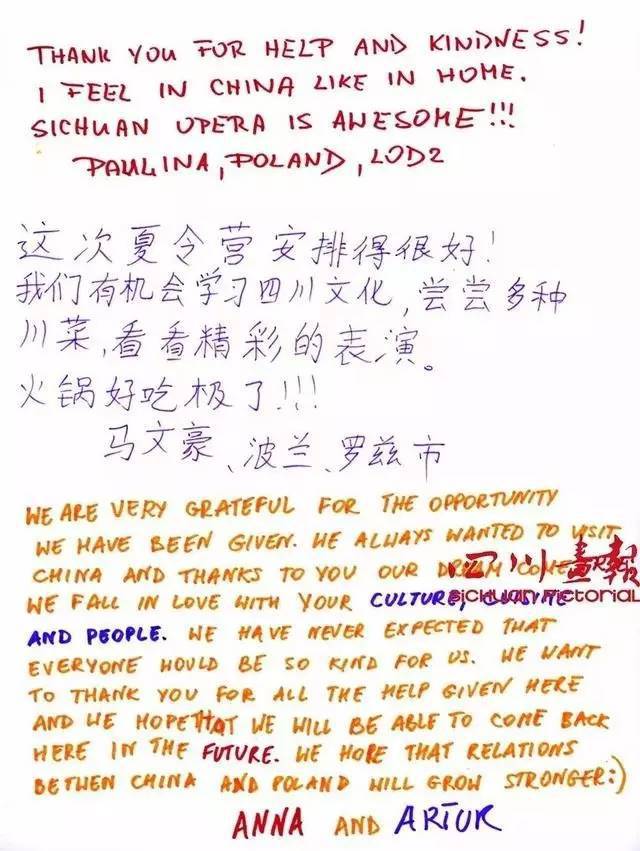 THANK YOU FOR HELP AND KINDNESS!
I FEEL IN CHINA LIKE IN HOME.
SICHUAN OPERA IS AWESOME!!!
PAULINA, POLAND, LODZ
这次夏令营安排得很好!
我们有机会学习四川文化,尝尝多种
川菜,看看精彩的表演。
火锅好吃极了!!!
马文豪、波兰、罗兹市
WE ARE VERY GRATEFUL FOR THE OPPORTUNITY
WE HAVE BEEN GIVEN. WE ALWAYS WANTED TO VISIT
CHINA AND THANKS TO YOU OUR DREAM COME
四川畫報
SICHUAN PICTORIAL
WE FALL IN LOVE WITH YOUR CULTURE, CUISINE
AND PEOPLE. WE HAVE NEVER EXPECTED THAT
EVERYONE WOULD BE SO KIND FOR US. WE WANT
TO THANK YOU FOR ALL THE HELP GIVEN HERE
AND WE HOPE THAT WE WILL BE ABLE TO COME BACK
HERE IN THE FUTURE. WE HOPE THAT RELATIONS
BETWEN CHINA AND POLAND WILL GROW STRONGER:)
ANNA AND ARTUR